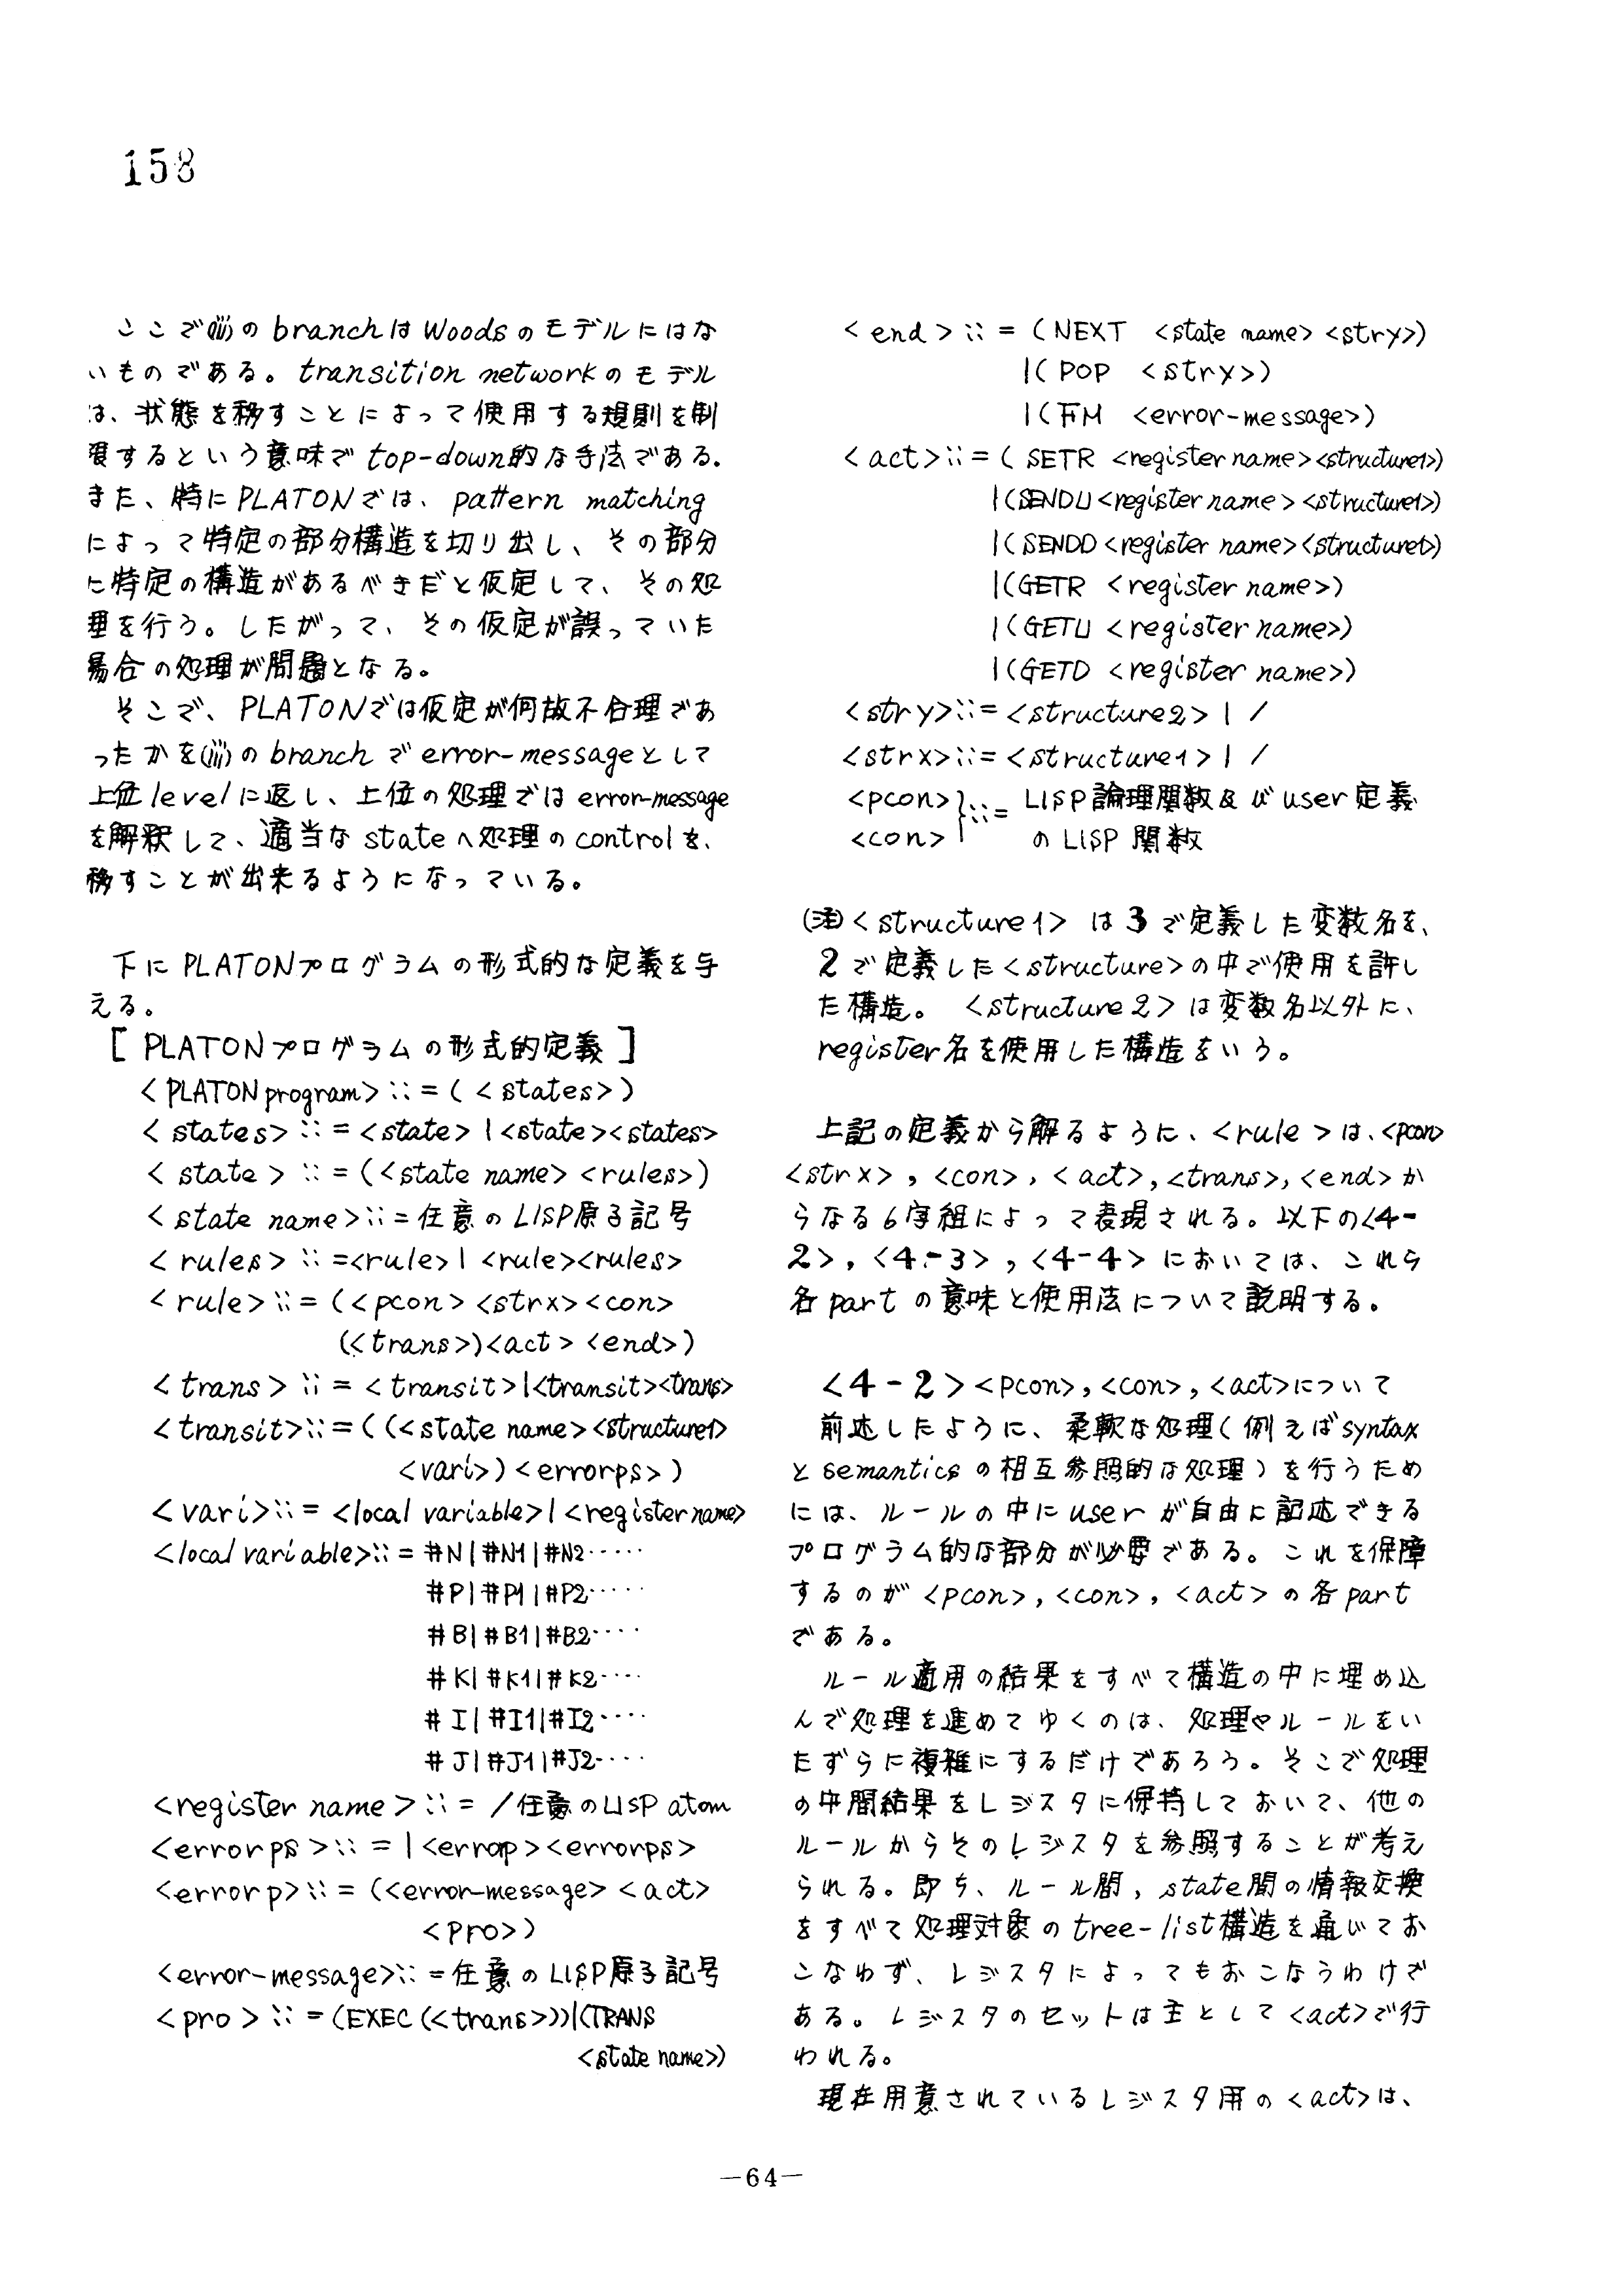 158
ここで(iii)のbranchはWoodsのモデルにはな
いものである。transition networkのモデル
は、状態を移すことによって使用する規則を制
限するという意味でtop-down的な手法である。
また、特にPLATONでは、pattern matching
によって特定の部分構造を切り出し、その部分
に特定の構造があるべきだと仮定して、その処
理を行う。したがって、その仮定が誤っていた
場合の処理が問題となる。
そこで、PLATONでは仮定が何故不合理であ
ったかを(iii)のbranchでerror-messageとして
上位levelに返し、上位の処理ではerror-message
を解釈して、適当なstateへ処理のcontrolを、
移すことが出来るようになっている。
下にPLATONプログラムの形式的な定義を与
える。
[PLATONプログラムの形式的定義]
<PLATON program>::=(<states>)
<states>::=<state>|<state><states>
<state>::=(<state name><rules>)
<state name>::=任意のLISP原子記号
<rules>::=<rule>|<rule><rules>
<rule>::=(<pcon><strx><con>
(<trans>)<act><end>)
<trans>::=<transit>|<transit><trans>
<transit>::=((<state name><structure1>
<vari>)<errorps>)
<vari>::=<local variable>|<register name>
<local variable>::=#N|#N1|#N2·····
#P|#P1|#P2·····
#B|#B1|#B2····
#K|#K1|#K2····
#I|#I1|#I2····
#J|#J1|#J2····
<register name>::=/任意のLISP atom
<errorps>::=|<errop><errorps>
<errorp>::=(<error-message><act>
<pro>)
<error-message>::=任意のLISP原子記号
<pro>::=(EXEC(<trans>))|(TRANS
<state name>)
<end>::=(NEXT <state name><stry>)
|(POP <stry>)
|(FM <error-message>)
<act>::=(SETR <register name><structure1>)
|(SENDU<register name><structure1>)
|(SENDD<register name><structure1>)
|(GETR <register name>)
|(GETU <register name>)
|(GETD <register name>)
<stry>::=<structure2>| /
<strx>::=<structure1>| /
<pcon>}::= LISP論理関数及びuser定義
<con> のLISP関数
(注)<structure1>は3で定義した変数名を、
2で定義した<structure>の中で使用を許し
た構造。<structure2>は変数名以外に、
register名を使用した構造をいう。
上記の定義から解るように、<rule>は、<pcon>
<strx>,<con>,<act>,<trans>,<end>か
らなる6字組によって表現される。以下の<4-
2>,<4-3>,<4-4>においては、これら
各partの意味と使用法について説明する。
<4-2><pcon>,<con>,<act>について
前述したように、柔軟な処理(例えばsyntax
とsemanticsの相互参照的な処理)を行うため
には、ルールの中にuserが自由に記述できる
プログラム的な部分が必要である。これを保障
するのが<pcon>,<con>,<act>の各part
である。
ルール適用の結果をすべて構造の中に埋め込
んで処理を進めてゆくのは、処理やルールをい
たずらに複雑にするだけであろう。そこで処理
の中間結果をレジスタに保持しておいて、他の
ルールからそのレジスタを参照することが考え
られる。即ち、ルール間,state間の情報交換
をすべて処理対象のtree-list構造を通じてお
こなわず、レジスタによってもおこなうわけで
ある。レジスタのセットは主として<act>で行
われる。
現在用意されているレジスタ用の<act>は、
—64—